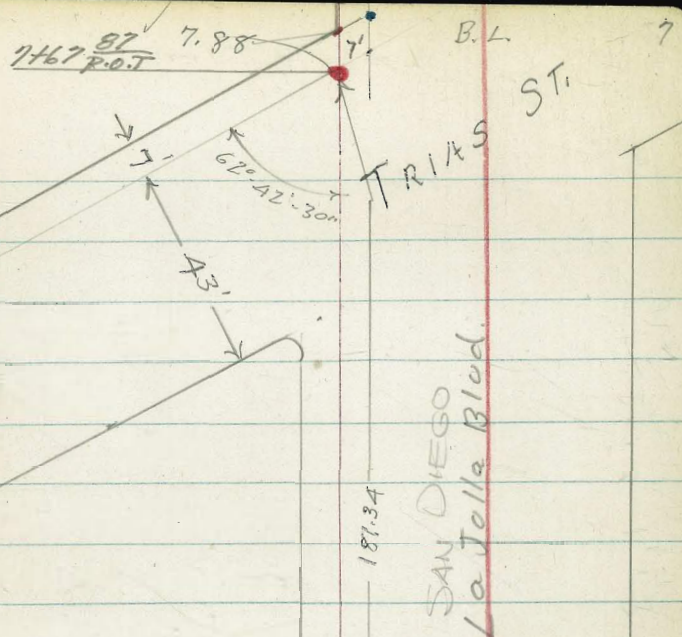 7+67 87 7.88 7' B.L. 7
P.O.T
TRIAS ST.
7'
62°-42'-30"
43'
187.34
SAN DIEGO
La Jolla Blvd.